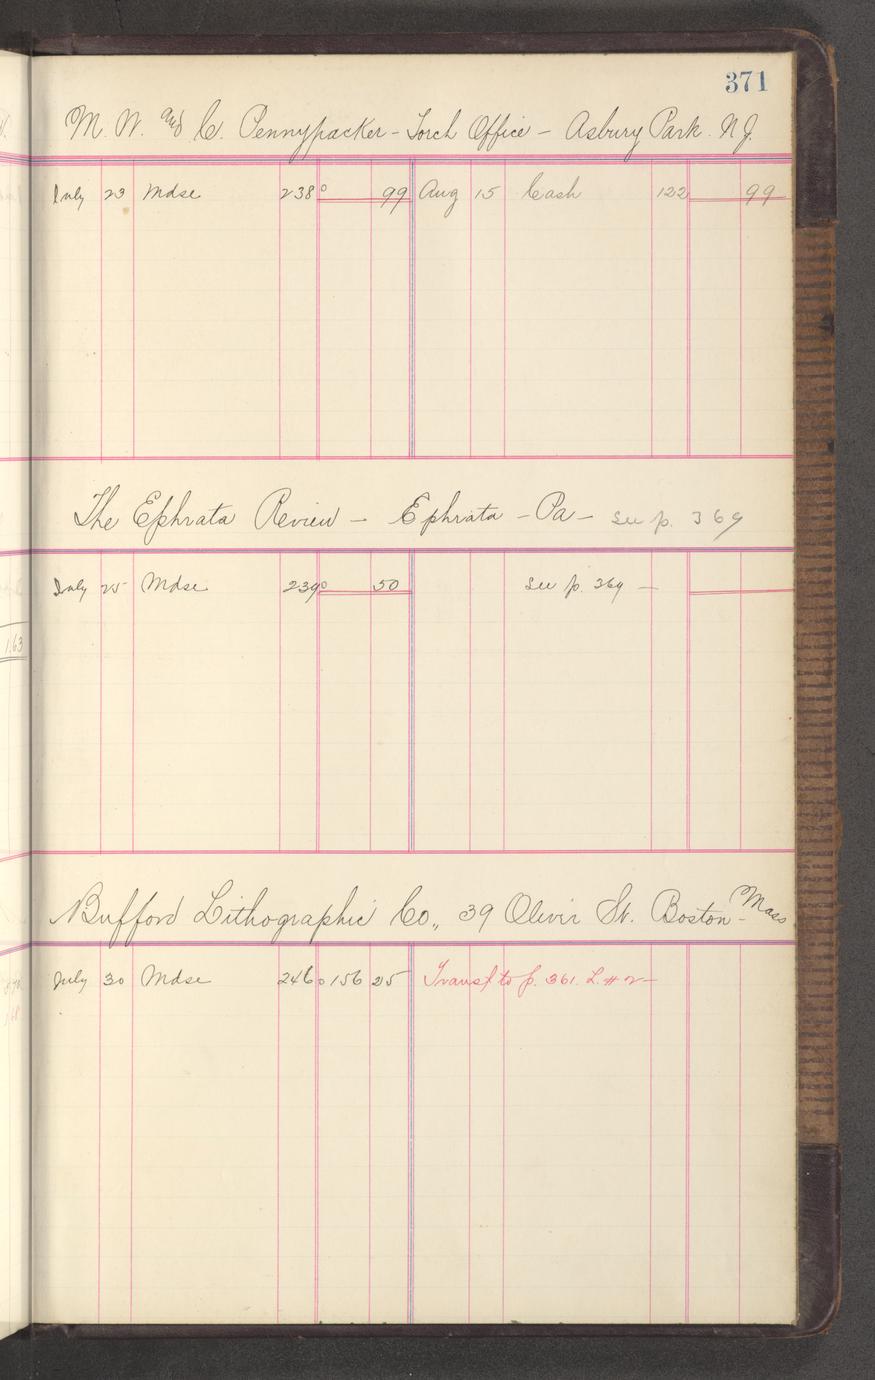 371
M. W. and C. Pennypacker - Torch Office - Asbury Park. N.J.
July 23 Mdse 238° 99 Aug 15 Cash 122 99
The Ephrata Review - Ephrata - Pa - See p. 369
July 25 Mdse 239° 50 See p. 369 -
1.63
Bufford Lithographic Co., 39 Oliver St. Boston - Mass
July 30 Mdse 246° 156 25 Transf to p. 361. L. # 2 -